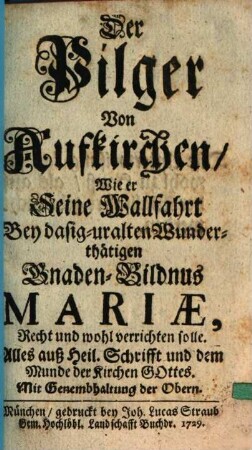 Der
Pilger
Von
Aufkirchen/
Wie er
Seine Wallfahrt
Bey dasig-uralten Wunder-
thätigen
Gnaden-Bildnus
MARIÆ,
Recht und wohl verrichten solle.
Alles auß Heil. Schrifft und dem
Munde der Kirchen GOttes.
Mit Genembhaltung der Obern.
München/ gedruckt bey Joh. Lucas Straub
Gem. Hochlöbl. Landschafft Buchdr. 1729.